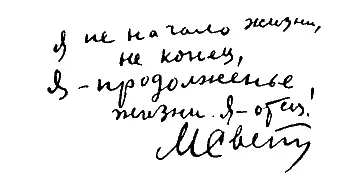 Я не начало жизни,
не конец,
Я - продолженье
жизни. Я - отец!
МСвет